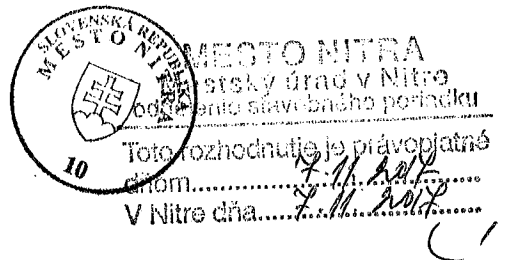 SLOVENSKÁ REPUBLIKA
MESTO NITRA
10
MESTO NITRA
stský úrad v Nitre
odd enie stavebného poriadku
Toto rozhodnutie je právoplatné
dňom..........7.11.2017..........
V Nitre dňa.......7.11.2017..........